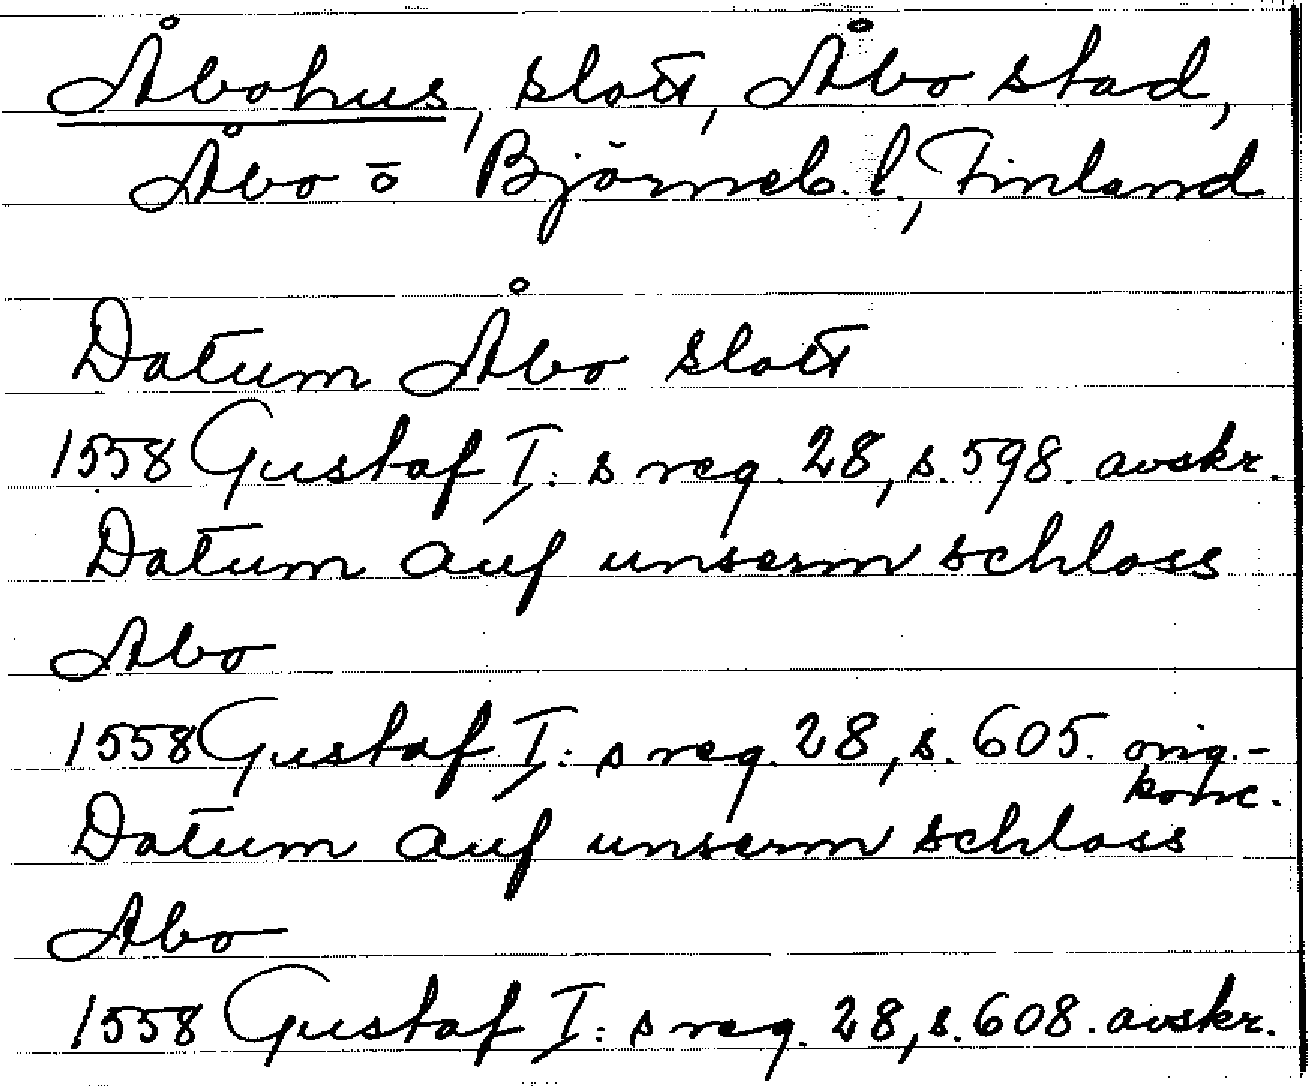 Åbohus, slott, Åbo stad,
Åbo o Björneb. l., Finland
Datum Åbo slott
1558 Gustaf I:s reg. 28, s. 598. avskr.
Datum auf unserm schloss
Abo
1558 Gustaf I:s reg. 28, s. 605. orig.-
konc.
Datum auf unserm schloss
Abo
1558 Gustaf I:s reg. 28, s. 608. avskr.